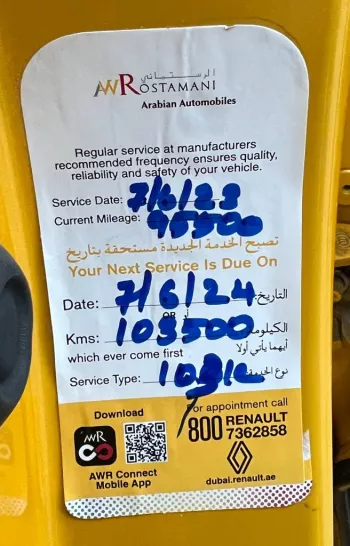 الرستماني
AWROSTAMANI
Arabian Automobiles
Regular service at manufacturers
recommended frequency ensures quality,
reliability and safety of your vehicle.
Service Date: 7/6/23
Current Mileage: 95500
تصبح الخدمة الجديدة مستحقة بتاريخ
Your Next Service Is Due On
Date: 7/6/24 التاريخ:
OR
Kms: 103500
which ever come first أيهما يأتي أولا
Service Type:
Download
For appointment call
800 RENAULT
7362858
AWR
AWR Connect
Mobile App
dubai.renault.ae